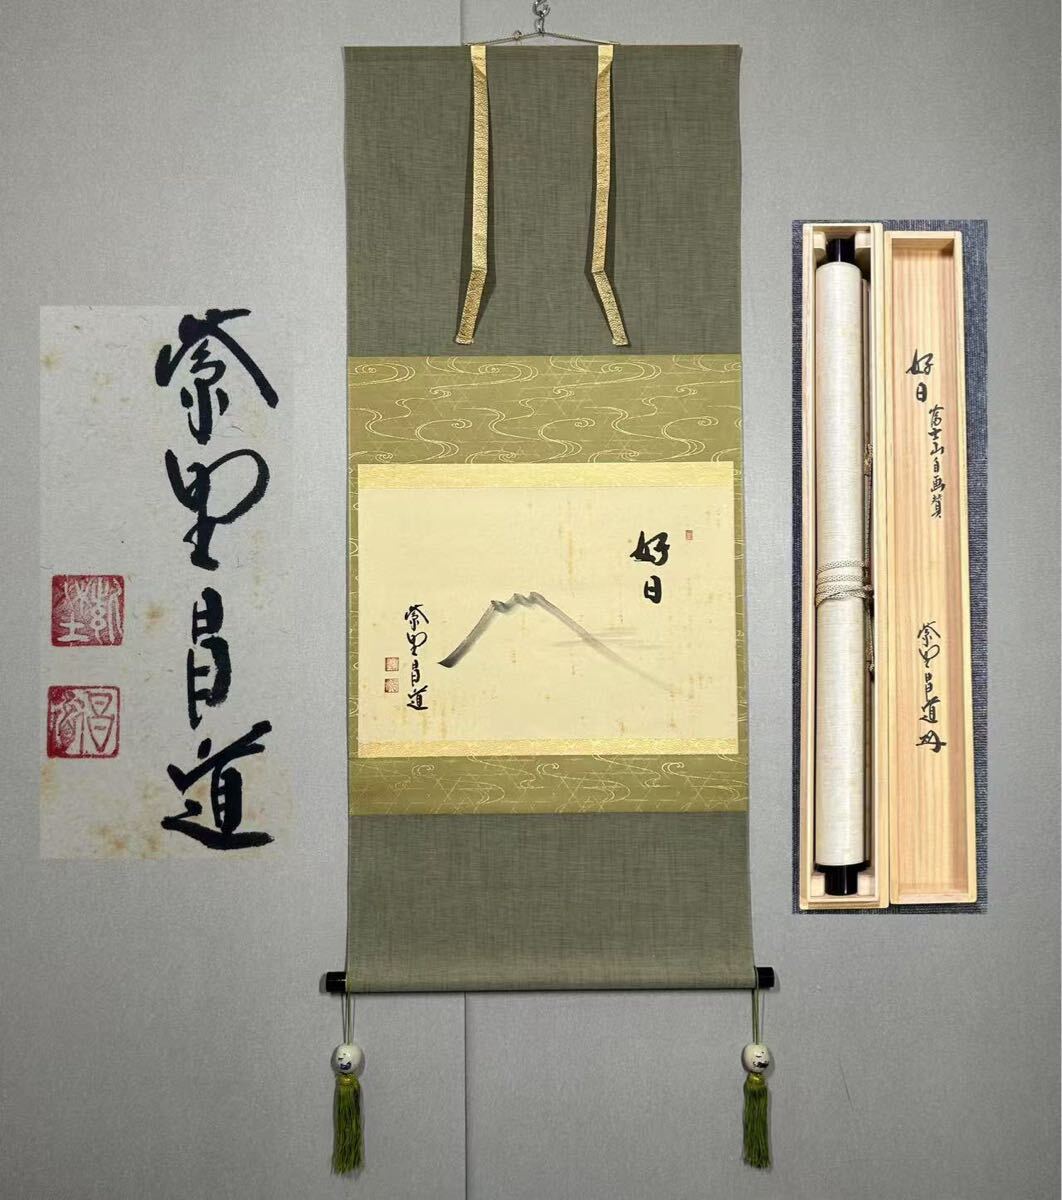 紫野昌道
好日
紫野昌道
好日
富士山自画賛
紫野昌道